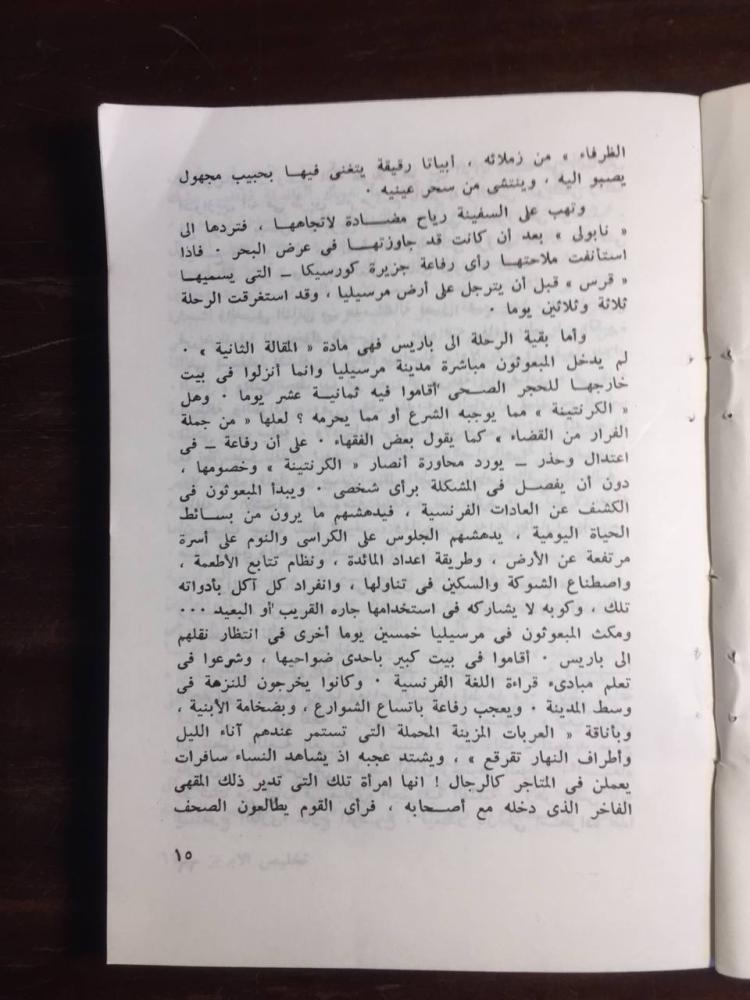 الظرفاء » من زملائه ، أبياتا رقيقة يتغنى فيها بحبيب مجهول
يصبو اليه ، وينتشى من سحر عينيه ٠
وتهب على السفينة رياح مضادة لاتجاهها ، فتردها الى
« نابولى » بعد أن كانت قد جاوزتها فى عرض البحر ٠ فاذا
استأنفت ملاحتها رأى رفاعة جزيرة كورسيكا ـ التى يسميها
« قرس » قبل أن يترجل على أرض مرسيليا ، وقد استغرقت الرحلة
ثلاثة وثلاثين يوما ٠
وأما بقية الرحلة الى باريس فهى مادة « المقالة الثانية » ٠
لم يدخل المبعوثون مباشرة مدينة مرسيليا وانما أنزلوا فى بيت
خارجها للحجر الصحى أقاموا فيه ثمانية عشر يوما ٠ وهل
« الكرنتينة » مما يوجبه الشرع أو مما يحرمه ؟ لعلها « من جملة
الفرار من القضاء » كما يقول بعض الفقهاء ٠ على أن رفاعة ـ فى
اعتدال وحذر ـ يورد محاورة أنصار « الكرنتينة » وخصومها ،
دون أن يفصل فى المشكلة برأى شخصى ٠ ويبدأ المبعوثون فى
الكشف عن العادات الفرنسية ، فيدهشهم ما يرون من بسائط
الحياة اليومية ، يدهشهم الجلوس على الكراسى والنوم على أسرة
مرتفعة عن الأرض ، وطريقة اعداد المائدة ، ونظام تتابع الأطعمة ،
واصطناع الشوكة والسكين فى تناولها ، وانفراد كل آكل بأدواته
تلك ، وكوبه لا يشاركه فى استخدامها جاره القريب أو البعيد ٠٠٠
ومكث المبعوثون فى مرسيليا خمسين يوما أخرى فى انتظار نقلهم
الى باريس ٠ أقاموا فى بيت كبير باحدى ضواحيها ، وشرعوا فى
تعلم مبادىء قراءة اللغة الفرنسية ٠ وكانوا يخرجون للنزهة فى
وسط المدينة ٠ ويعجب رفاعة باتساع الشوارع ، وبضخامة الأبنية ،
وبأناقة « العربات المزينة المحملة التى تستمر عندهم آناء الليل
وأطراف النهار تقرقع » ، ويشتد عجبه اذ يشاهد النساء سافرات
يعملن فى المتاجر كالرجال ! انها امرأة تلك التى تدير ذلك المقهى
الفاخر الذى دخله مع أصحابه ، فرأى القوم يطالعون الصحف
١٥